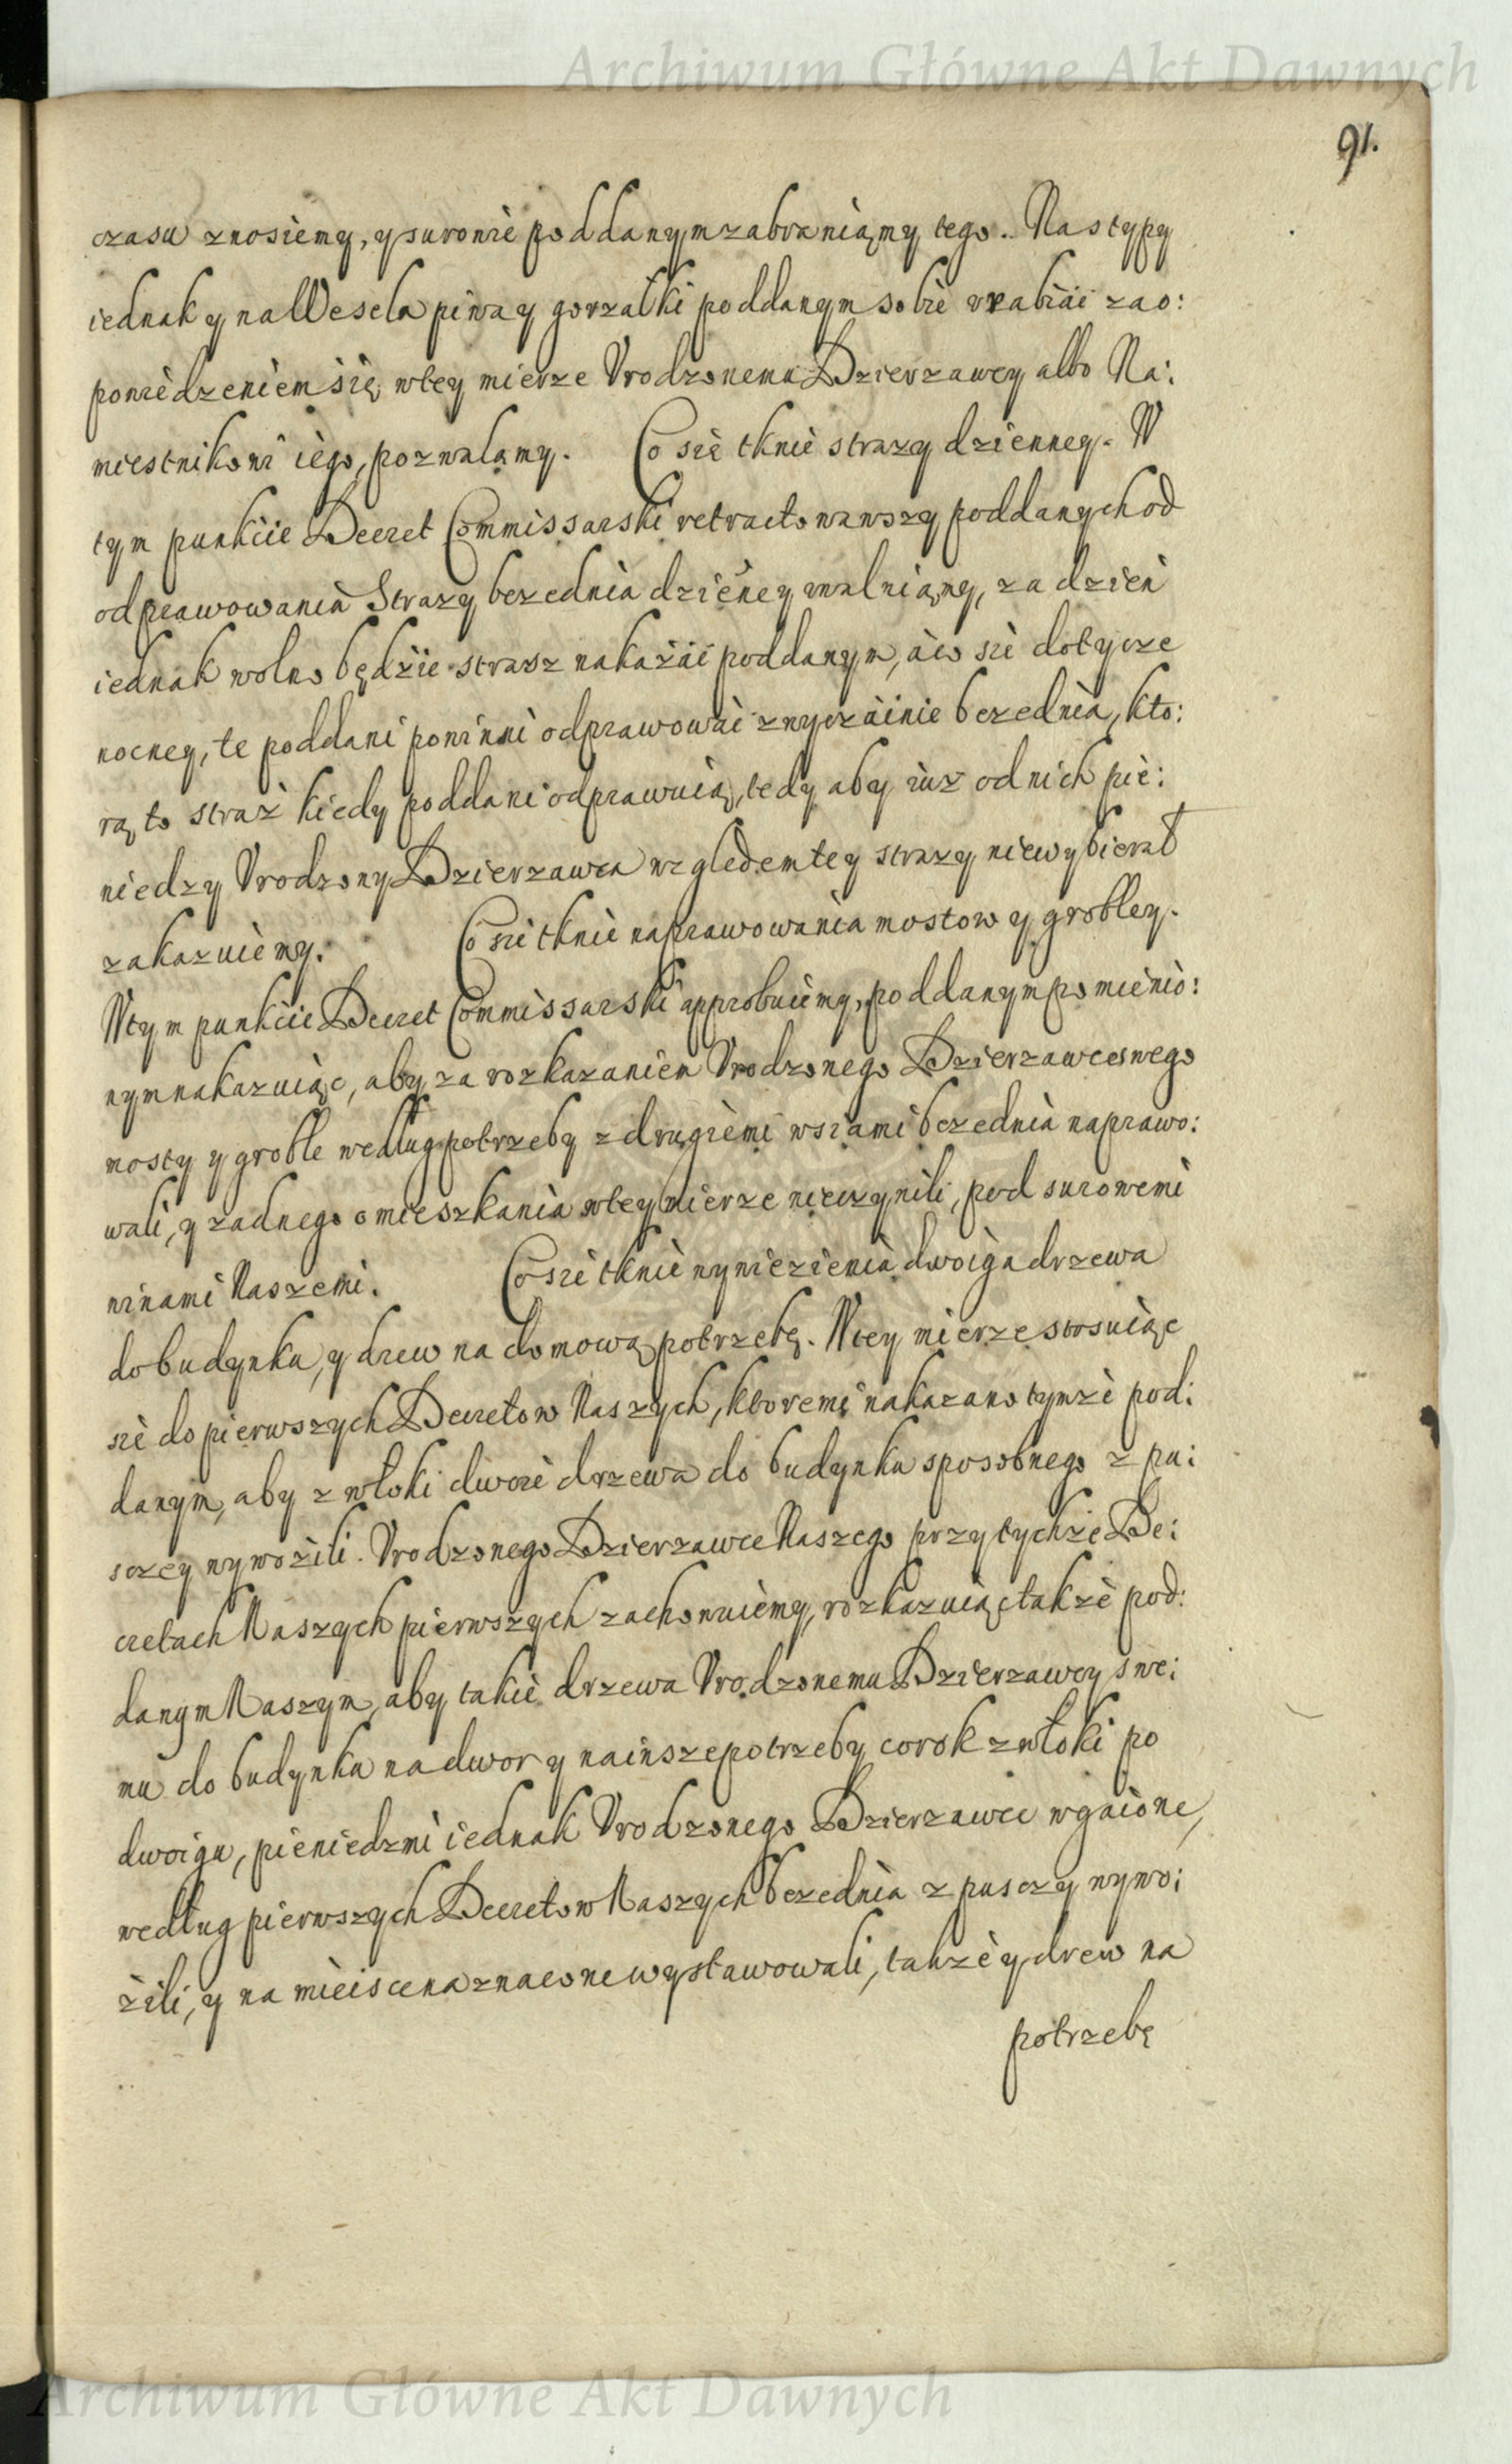 Archiwum Główne Akt Dawnych
91.
czasu znosiemy, y surowie poddanym zabraniamy tego. Na stypy
iednak y na Wesela piwa y gorzałki poddanym sobie vrabiać za o:
powiedzeniem się w tey mierze Vrodzonemu Dzierzawcy albo Na:
miestnikowi iego, pozwalamy. Co się tknie strazy dzienney. W
tym punkcie Decret Commissarski retractowawszy poddanych od
odprawowania Strazy bezednia dzieney uwalniamy, za dzień
iednak wolno będzie strasz nakazać poddanym, a co sie dotycze
nocney, te poddani powinni odprawować zwyczainie bezednia, kto:
rą to straż kiedy poddani odprawuią, tedy aby iuz od nich pie:
niedzy Vrodzony Dzierzawca względem tey strazy nie wybierał
zakazuiemy. Co sie tknie naprawowania mostow y grobley.
W tym punkcie Decret Commissarski approbuiemy, poddanym pomienio:
nym nakazuiąc, aby za rozkazaniem Vrodzonego Dzierzawce swego
mosty y groble według potrzeby z drugiemi wsiami bezednia naprawo:
wali, y zadnego omieszkania w tey mierze nieczynili, pod surowemi
winami Naszemi. Co sie tknie wywiezienia dwoiga drzewa
do budynku, y drew na domową potrzebę. W tey mierze stosuiąc
sie do pierwszych Decretow Naszych, ktoremi nakazano tymze pod:
danym, aby z włoki dwoie drzewa do budynku sposobnego z pu:
sczey wywozili. Vrodzonego Dzierzawce Naszego przy tychże De:
cretach Naszych pierwszych zachowuiemy, rozkazuiąc także pod:
danym Naszym, aby takie drzewa Vrodzonemu Dzierzawcy swe:
mu do budynku na dwor y na insze potrzeby co rok z włoki po
dwoigu, pieniedzmi iednak Vrodzonego Dzierzawce wgaione,
według pierwszych Decretow Naszych bezednia z pusczy wywo:
żili, y na mieisce naznaczone wystawowali, także y drew na
potrzebę
Archiwum Główne Akt Dawnych